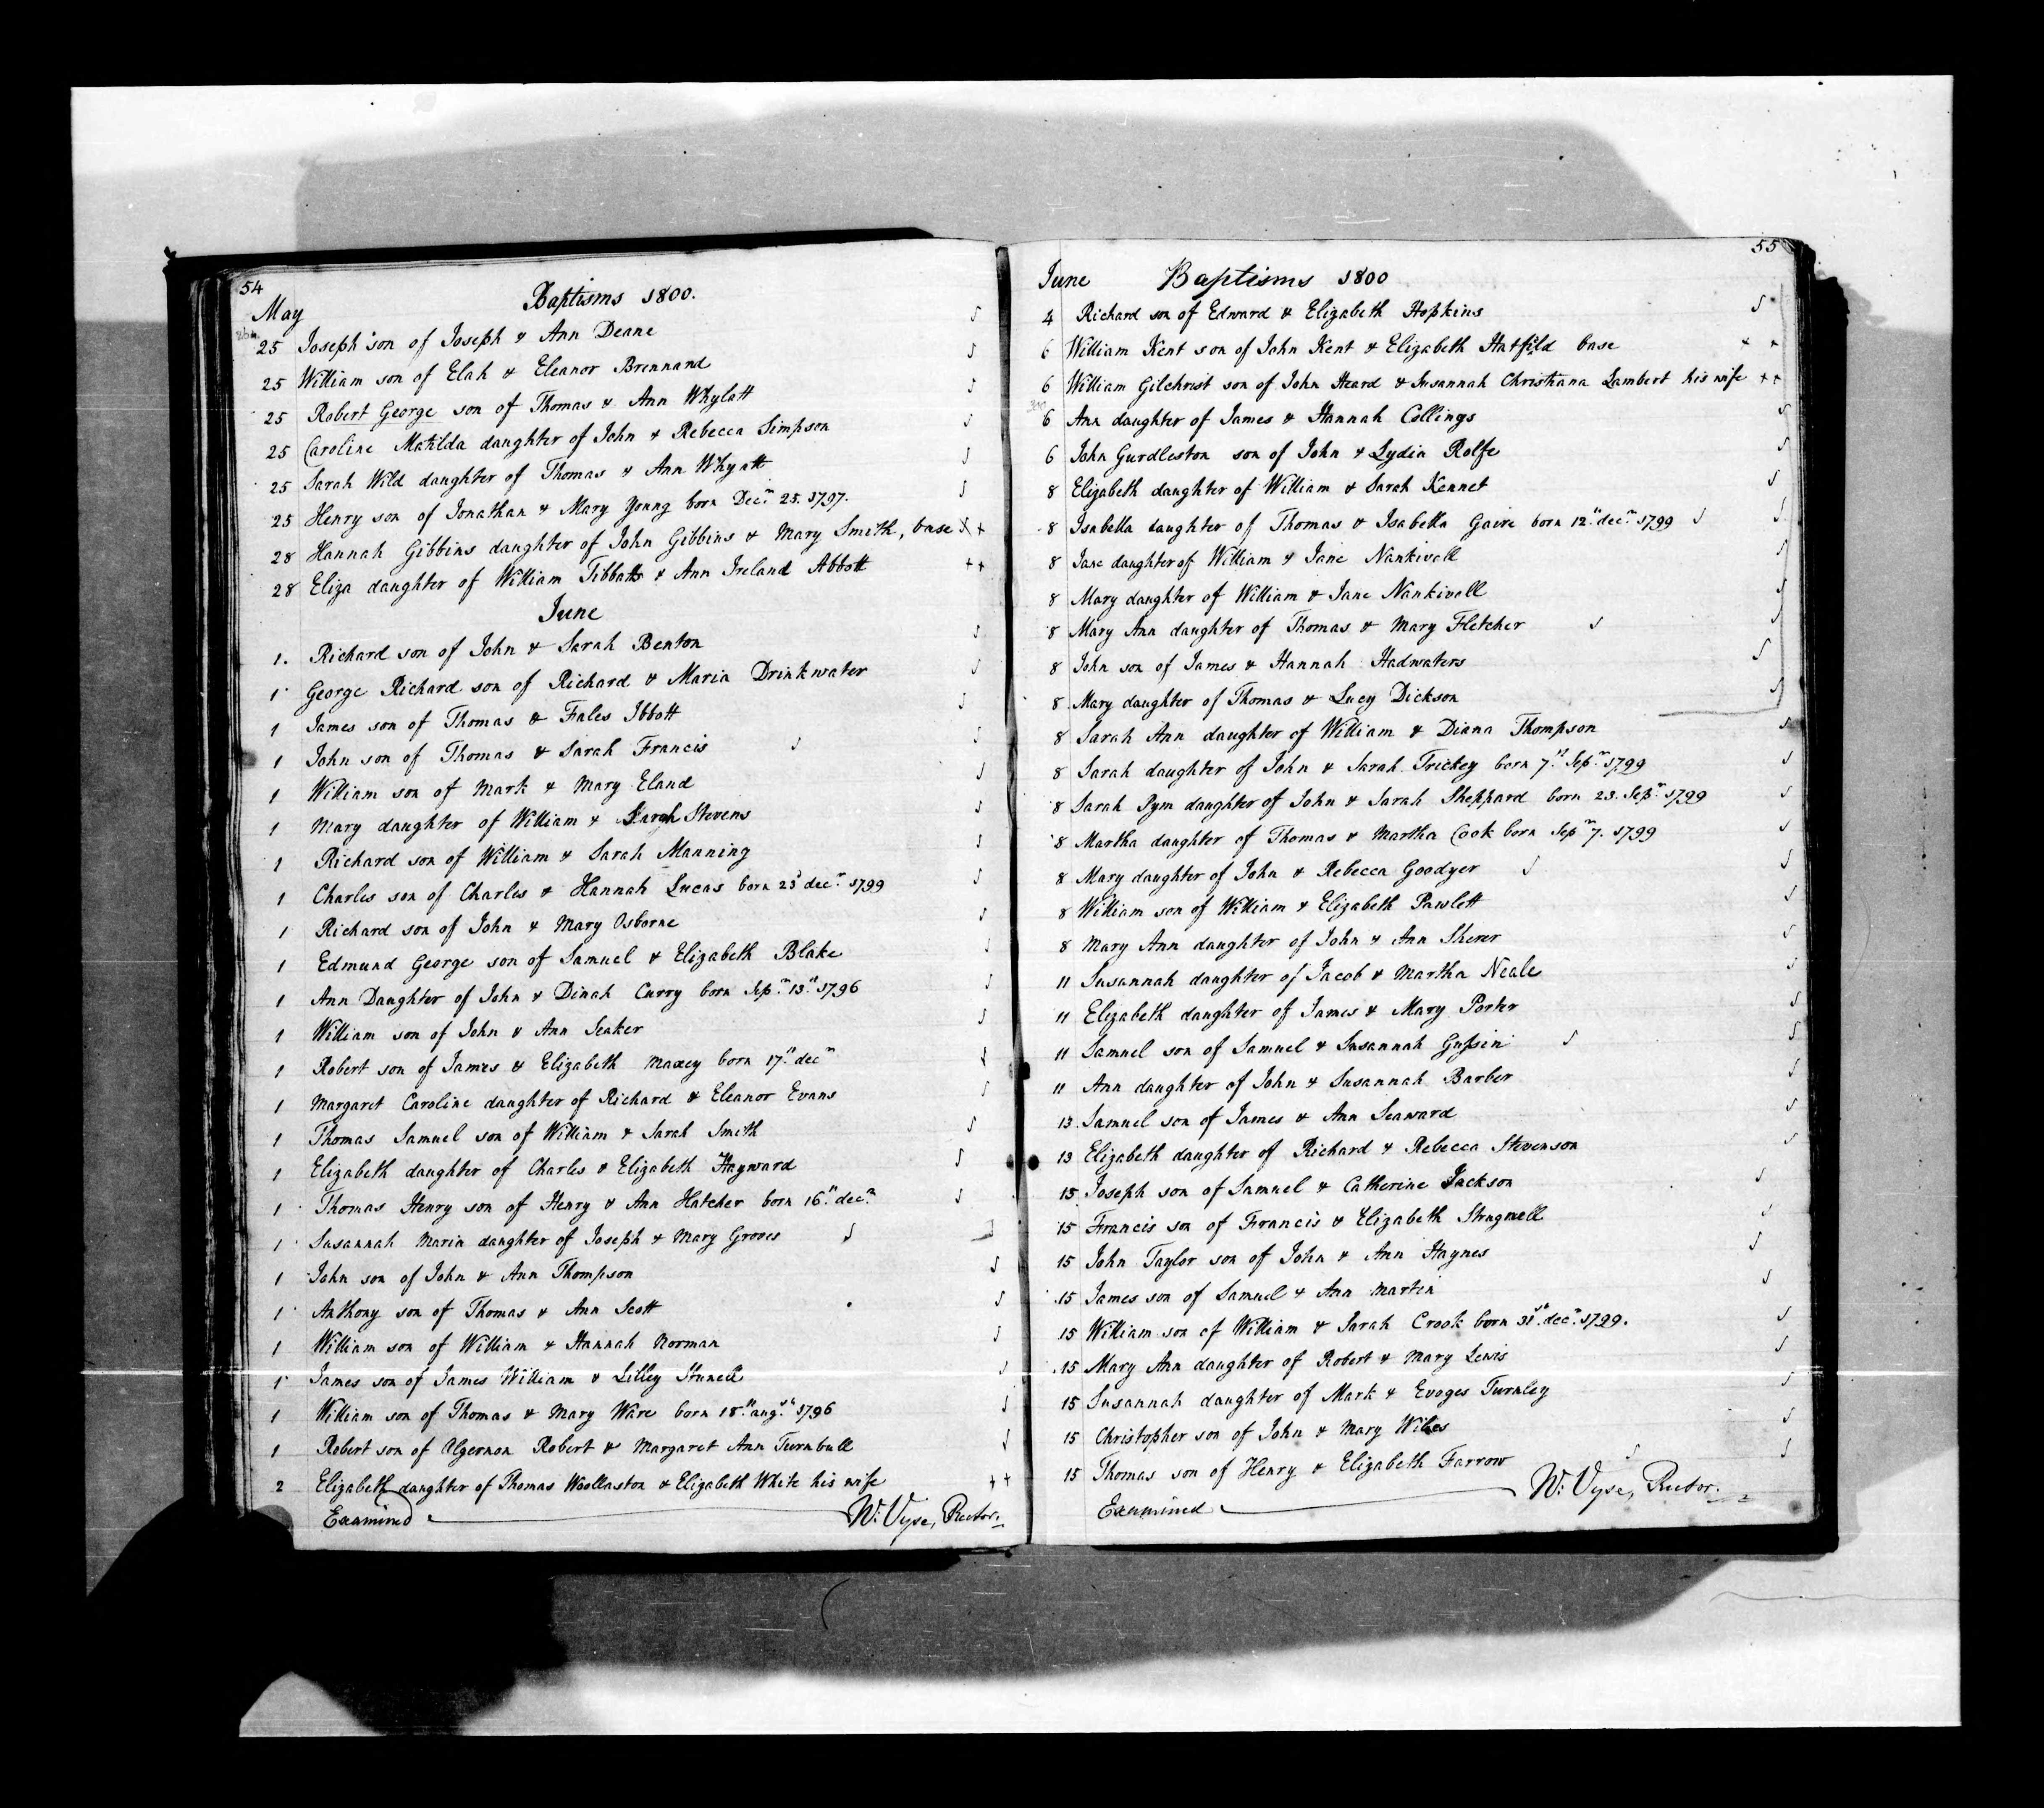 54
Baptisms 1800.
May
25 Joseph son of Joseph & Ann Deane
25 William son of Elah & Eleanor Brennand
25 Robert George son of Thomas & Ann Whylatt
25 Caroline Matilda daughter of John & Rebecca Simpson
25 Sarah Wild daughter of Thomas & Ann Whyatt
25 Henry son of Jonathan & Mary Young born Decr. 25. 1797.
28 Hannah Gibbins daughter of John Gibbins & Mary Smith, base ++
28 Eliza daughter of William Tibbatts & Ann Ireland Abbott ++
June
1. Richard son of John & Sarah Benton
1 George Richard son of Richard & Maria Drinkwater
1 James son of Thomas & Fales Ibbott
1 John son of Thomas & Sarah Francis
1 William son of Mark & Mary Eland
1 Mary daughter of William & Sarah Stevens
1 Richard son of William & Sarah Manning
1 Charles son of Charles & Hannah Lucas born 23d decr. 1799
1 Richard son of John & Mary Osborne
1 Edmund George son of Samuel & Elizabeth Blake
1 Ann Daughter of John & Dinah Curry born Sepr. 13th 1796
1 William son of John & Ann Seaker
1 Robert son of James & Elizabeth Maxey born 17th decr
1 Margaret Caroline daughter of Richard & Eleanor Evans
1 Thomas Samuel son of William & Sarah Smith
1 Elizabeth daughter of Charles & Elizabeth Hayward
1 Thomas Henry son of Henry & Ann Hatcher born 16th decr.
1 Susannah Maria daughter of Joseph & Mary Groves
1 John son of John & Ann Thompson
1 Anthony son of Thomas & Ann Scott
1 William son of William & Hannah Norman
1 James son of James William & Lilley Stunell
1 William son of Thomas & Mary Ware born 18th augst 1796
1 Robert son of Algernon Robert & Margaret Ann Turnbull
2 Elizabeth daughter of Thomas Woollaston & Elizabeth White his wife ++
Examined W: Vyse, Rector.
55
June Baptisms 1800
4 Richard son of Edward & Elizabeth Hopkins
6 William Kent son of John Kent & Elizabeth Hatfild base + +
6 William Gilchrist son of John Heard & Susannah Christiana Lambert his wife ++
6 Ann daughter of James & Hannah Collings
6 John Gurdleston son of John & Lydia Rolfe
8 Elizabeth daughter of William & Sarah Kennet
8 Isabella daughter of Thomas & Isabella Gaire born 12th decr. 1799
8 Jane daughter of William & Jane Nankivell
8 Mary daughter of William & Jane Nankivell
8 Mary Ann daughter of Thomas & Mary Fletcher
8 John son of James & Hannah Hadwaters
8 Mary daughter of Thomas & Lucy Dickson
8 Sarah Ann daughter of William & Diana Thompson
8 Sarah daughter of John & Sarah Trickey born 7th Sepr. 1799
8 Sarah Pym daughter of John & Sarah Sheppard born 23. Sepr. 1799
8 Martha daughter of Thomas & Martha Cook born Sepr 7. 1799
8 Mary daughter of John & Rebecca Goodyer
8 William son of William & Elizabeth Pawlett
8 Mary Ann daughter of John & Ann Sherer
11 Susannah daughter of Jacob & Martha Neale
11 Elizabeth daughter of James & Mary Porter
11 Samuel son of Samuel & Susannah Gussin
11 Ann daughter of John & Susannah Barber
13 Samuel son of James & Ann Seaward
13 Elizabeth daughter of Richard & Rebecca Stevenson
15 Joseph son of Samuel & Catherine Jackson
15 Francis son of Francis & Elizabeth Strugnell
15 John Taylor son of John & Ann Haynes
15 James son of Samuel & Ann Martin
15 William son of William & Sarah Crook born 31st decr. 1799.
15 Mary Ann daughter of Robert & Mary Lewis
15 Susannah daughter of Mark & Evoges Turnley
15 Christopher son of John & Mary Wiles
15 Thomas son of Henry & Elizabeth Farrow
Examined W: Vyse, Rector.